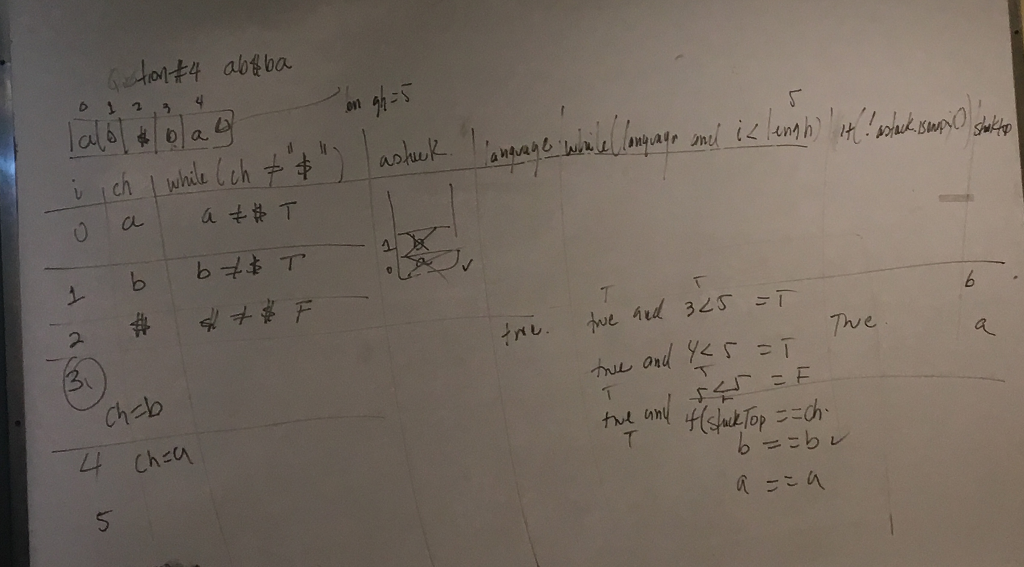 tion#4 ab$ba
0 1 2 3 4
a b $ b a
length=5
5
i ch while(ch ≠ "$") astack language while(language and i < length) If(!astack.isempty()) stacktop
0 a a ≠ $ T
1
0
1 b b ≠ $ T b
T T
2 $ $ ≠ $ F true. true and 3<5 = T True a
3.
true and 4<5 = T
T T
5<5 = F
ch=b true and
T F
if(stackTop ==ch.
4 ch=a b == b ✓
a == a
5